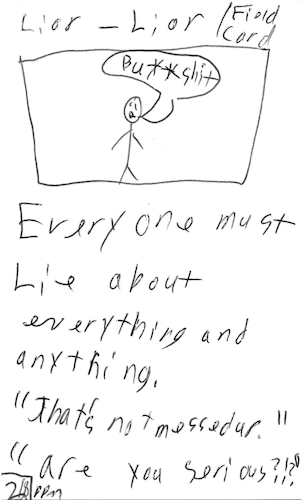 Liar - Liar / Field Card
Bu**shit
Every one must
Lie about
everything and
anything.
"That's not messedup."
"are you serious?!?"